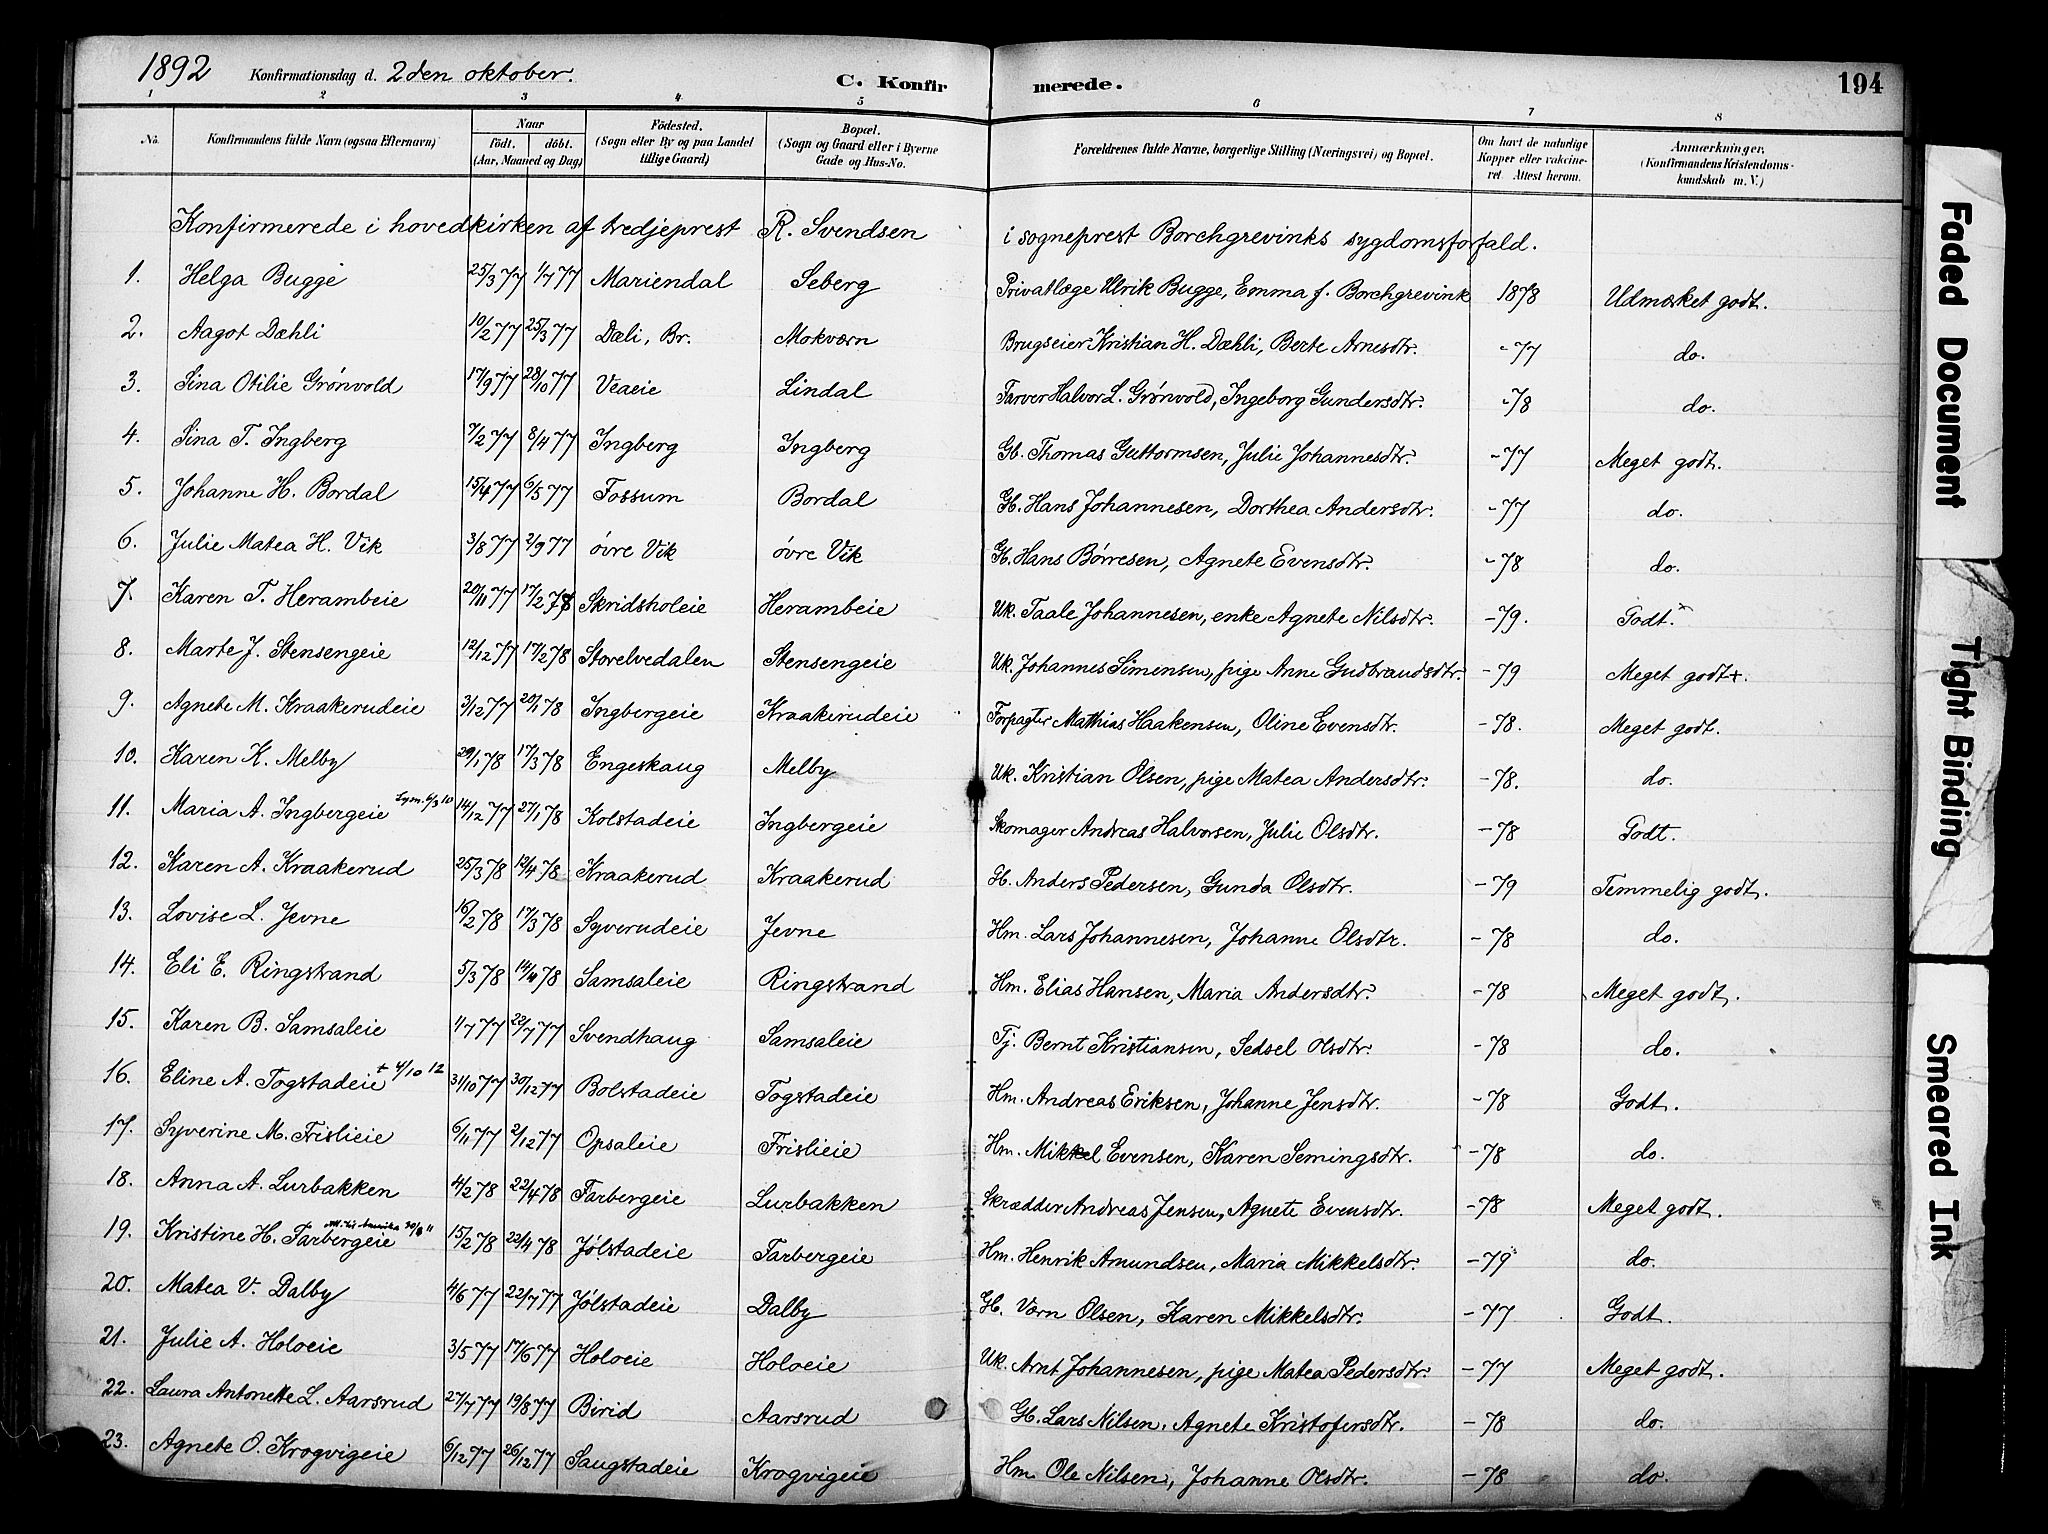 1892 Konfirmationsdag d. 2den oktober. C. Konfir merede. 194
1 2 3 4 5 6 7 8
No. Konfirmandens fulde Navn (ogsaa Efternavn) Naar födt. döbt. (Aar, Maaned og Dag) Födested. (Sogn eller By og paa Landet tillige Gaard) Bopæl. (Sogn og Gaard eller i Byerne Gade og Hus-No. Forældrenes fulde Navne, borgerlige Stilling (Næringsvei) og Bopæl. Om havt de naturlige Kopper eller vakcineret Attest herom. Anmærkninger. (Konfirmandens Kristendomskundskab m. V.)
Konfirmerede i hovedkirken af tredjeprest R. Svendsen i sogneprest Borchgrevinks sygdomsforfald.
1. Helga Bugge 25/3 77 1/7 77 Mariendal Seberg Privatlæge Ulrik Bugge, Emma f. Borchgrevink 1878 Udmærket godt.
2. Aagot Dæhli 10/2 77 25/3 77 Dæli, Br. Mokværn Brugseier Kristian H. Dæhli, Berte Arnesdtr. -77 do.
3. Sina Otilie Grønvold 17/9 77 28/10 77 Veaeie Lindal Farver Halvor L. Grønvold, Ingeborg Gundersdtr. -78 do.
4. Sina T. Ingberg 7/2 77 8/4 77 Ingberg Ingberg Gb. Thomas Guttormsen, Julie Johannesdtr. -77 Meget godt.
5. Johanne H. Bordal 15/4 77 6/5 77 Fossum Bordal Gb. Hans Johannesen, Dorthea Andersdtr. -77 do.
6. Julie Matea H. Vik 3/8 77 2/9 77 øvre Vik øvre Vik Gb. Hans Børresen, Agnete Evensdtr. -78 do.
7. Karen T. Herambeie 20/11 77 17/2 78 Skridsholeie Herambeie Uk. Taale Johannesen, enke Agnete Nilsdtr. -79. Godt.
8. Marte J. Stensengeie 12/12 77 17/2 78 Storelvedalen Stensengeie Uk. Johannes Simensen, pige Anne Gudbrandsdtr. -79 Meget godt+.
9. Agnete M. Kraakerudeie 3/12 77 20/1 78 Ingbergeie Kraakerudeie Forpagter Mathias Haakensen, Oline Evensdtr. -78. Meget godt.
10. Karen K. Melby 29/1 78 17/3 78 Engeskaug Melby Uk. Kristian Olsen, pige Matea Andersdtr. -78. do.
11. Maria A. Ingbergeie 14/12 77 27/1 78 Kolstadeie Ingbergeie Skomager Andreas Halvorsen, Julie Olsdtr. -78 Godt.
12. Karen A. Kraakerud 25/3 78 12/4 78 Kraakerud Kraakerud H. Anders Pedersen, Gunda Olsdtr. -79 Temmelig godt.
13. Lovise L. Jevne 16/2 78 17/3 78 Syverudeie Jevne Hm. Lars Johannesen, Johanne Olsdtr. -78 do.
14. Eli E. Ringstrand 5/3 78 14/4 78 Samsaleie Ringstrand Hm. Elias Hansen, Maria Andersdtr. -78 Meget godt.
15. Karen B. Samsaleie 1/7 77 22/7 77 Svendhaug Samsaleie Tj. Bernt Kristiansen, Sedsel Olsdtr. -78 do.
16. Eline A. Togstadeie + 4/10 12 31/10 77 30/12 77 Bolstadeie Togstadeie Hm. Andreas Eriksen, Johanne Jensdtr. -78 Godt.
17. Syverine M. Frislieie 6/11 77 2/12 77 Opsaleie Frislieie Hm. Mikkel Evensen, Karen Semingsdtr. -78 do.
18. Anna A. Lurbakken 4/2 78 22/4 78 Farbergeie Lurbakken Skrædder Andreas Jensen, Agnete Evensdtr. -78 Meget godt.
19. Kristine H. Farbergeie 15/2 78 22/4 78 Jølstadeie Farbergeie Hm. Henrik Amundsen, Maria Mikkelsdtr. -79 do.
20. Matea V. Dalby 4/6 77 22/7 77 Jølstadeie Dalby Gb. Værn Olsen, Karen Mikkelsdtr. -77 Godt.
21. Julie A. Holoeie 3/5 77 17/6 77 Holoeie Holoeie Uk. Arnt Johannesen, pige Matea Pedersdtr. -77 Meget godt.
22. Laura Antonette L. Aarsrud 27/7 77 19/8 77 Birid Aarsrud Gb. Lars Nilsen, Agnete Kristofersdtr. -78 do.
23. Agnete O. Krogvigeie 6/12 77 26/12 77 Saugstadeie Krogvigeie Hm. Ole Nilsen, Johanne Olsdtr. -78 do.
Faded Document
Tight Binding
Smeared Ink